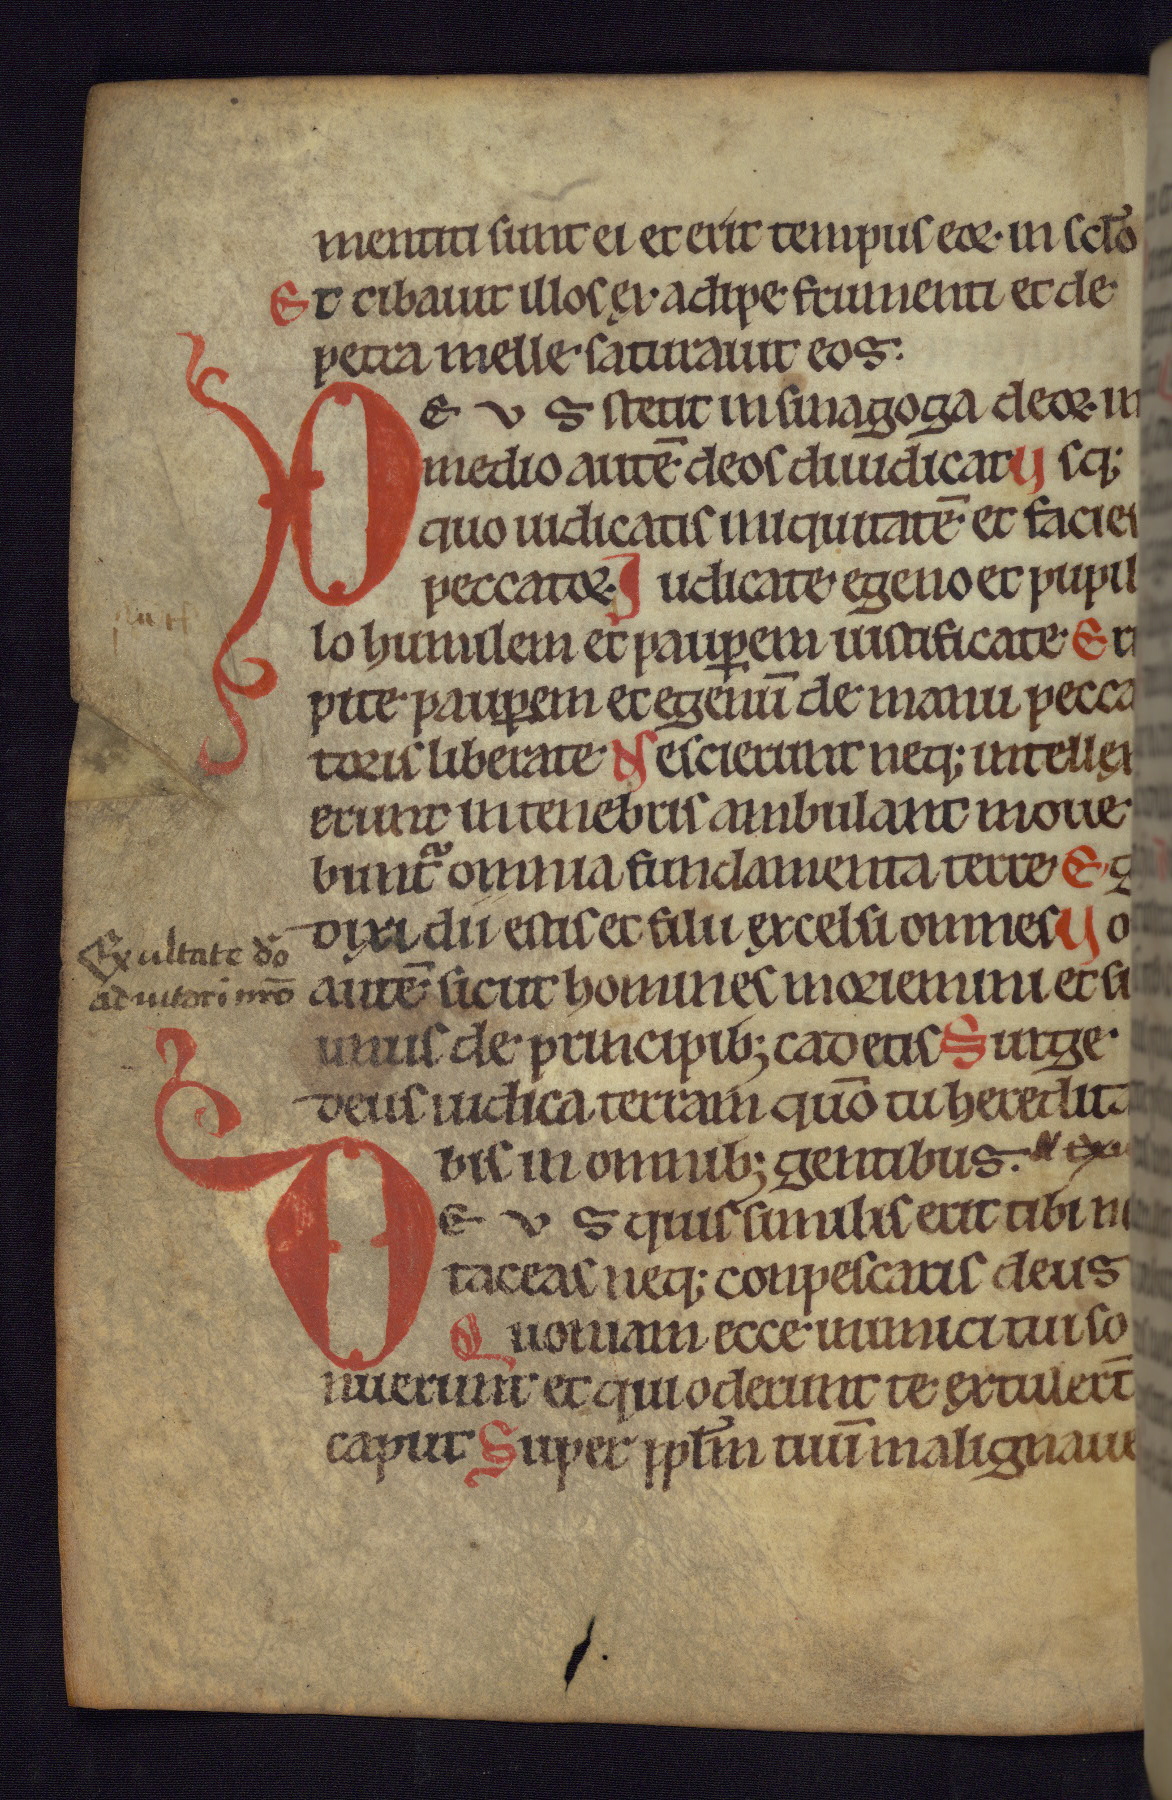 mentiti sunt ei et erit tempus eoꝝ in sclo̅
Et cibauit illos ex adipe frumenti et de
petra melle saturauit eos.
DEVS stetit in sinagoga deoꝝ in
medio aute̅ deos diuidicat Vsq;
quo iudicatis iniquitate̅ et facies
peccatoꝝ Iudicate egeno et pupil
lo humilem et paup̲em iustificate Eri
pite paup̲em et egenu̅ de manu pecca
toris liberate Nescierunt neq; intellex
erunt in tenebris ambulant moue
bunt᷑ omnia fundamenta terre Eg
dixi dii estis et filii excelsi omnes Vo
aute̅ sicut homines moriemini et si
unus de principib; cadetis Surge
deus iudica terram quo̅ tu heredita
bis in omnib; gentibus.
Exultate d̅o
adiutori nr̅o
DEVS quis similis erit tibi n
taceas neq; conpescaris deus
Quoniam ecce inimici tui so
nuerunt et qui oderunt te extulert̅
caput Super pplm̅ tuu̅ malignaue